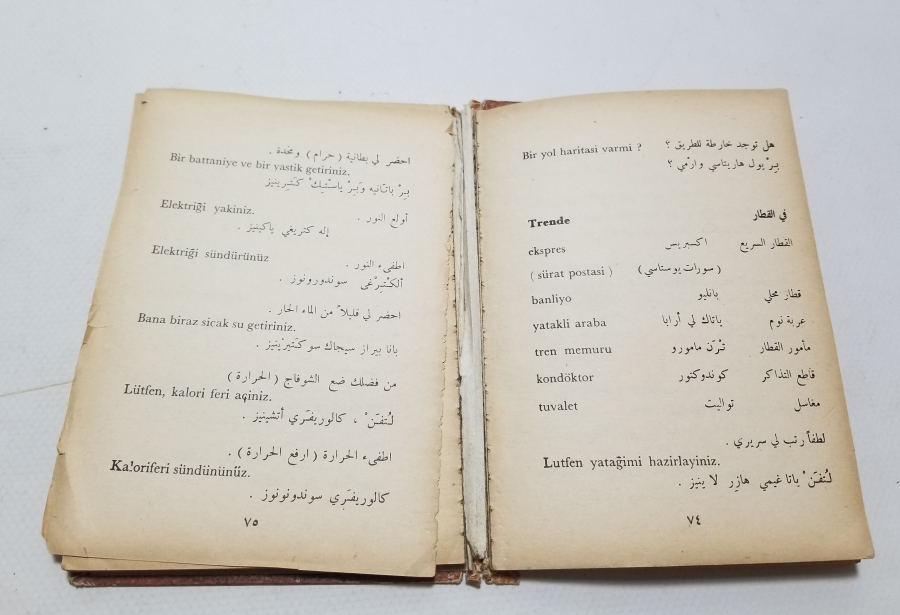 هل توجد خارطة للطريق ؟
Bir yol haritasi varmi ?
بِرْ يول هاريتاسي وارْمي ؟
في القطار
Trende
القطار السريع اكسبريس ekspres
(سورات پوستاسي) ( sürat postasi )
قطار محلي بانليو banliyo
عربة نوم ياتاك لي أرابا yatakli araba
مأمور القطار تْرَن مامورو tren memuru
قاطع التذاكر كوندوكتور kondöktor
مغاسل تواليت tuvalet
لطفاً رتب لي سريري .
Lutfen yatağimi hazirlayiniz.
لُتفَنْ ياتاغيمي هازِر لا ينيز .
٧٤
احضر لي بطانية ( حرام ) ومخدة .
Bir battaniye ve bir yastik getiriniz.
بِرْ باتانيه وَبِرْ ياسْتيكْ كَتيرينيز
أولع النور .
Elektriği yakiniz.
إله كتريغي ياكينيز .
اطفىء النور .
Elektriği sündürünüz
سوندورونوز .
احضر لي قليلاً من الماء الحار .
Bana biraz sicak su getiriniz.
بانا بيراز سيجاك سو كَتيرْينيز .
من فضلك ضع الشوفاج ( الحرارة )
Lütfen, kalori feri açiniz.
لُتفَنْ ، كالوريفَري أتشينيز .
اطفىء الحرارة ( ارفع الحرارة ) .
Kaloriferi sündününüz.
كالوريفَري سوندونونوز .
٧٥